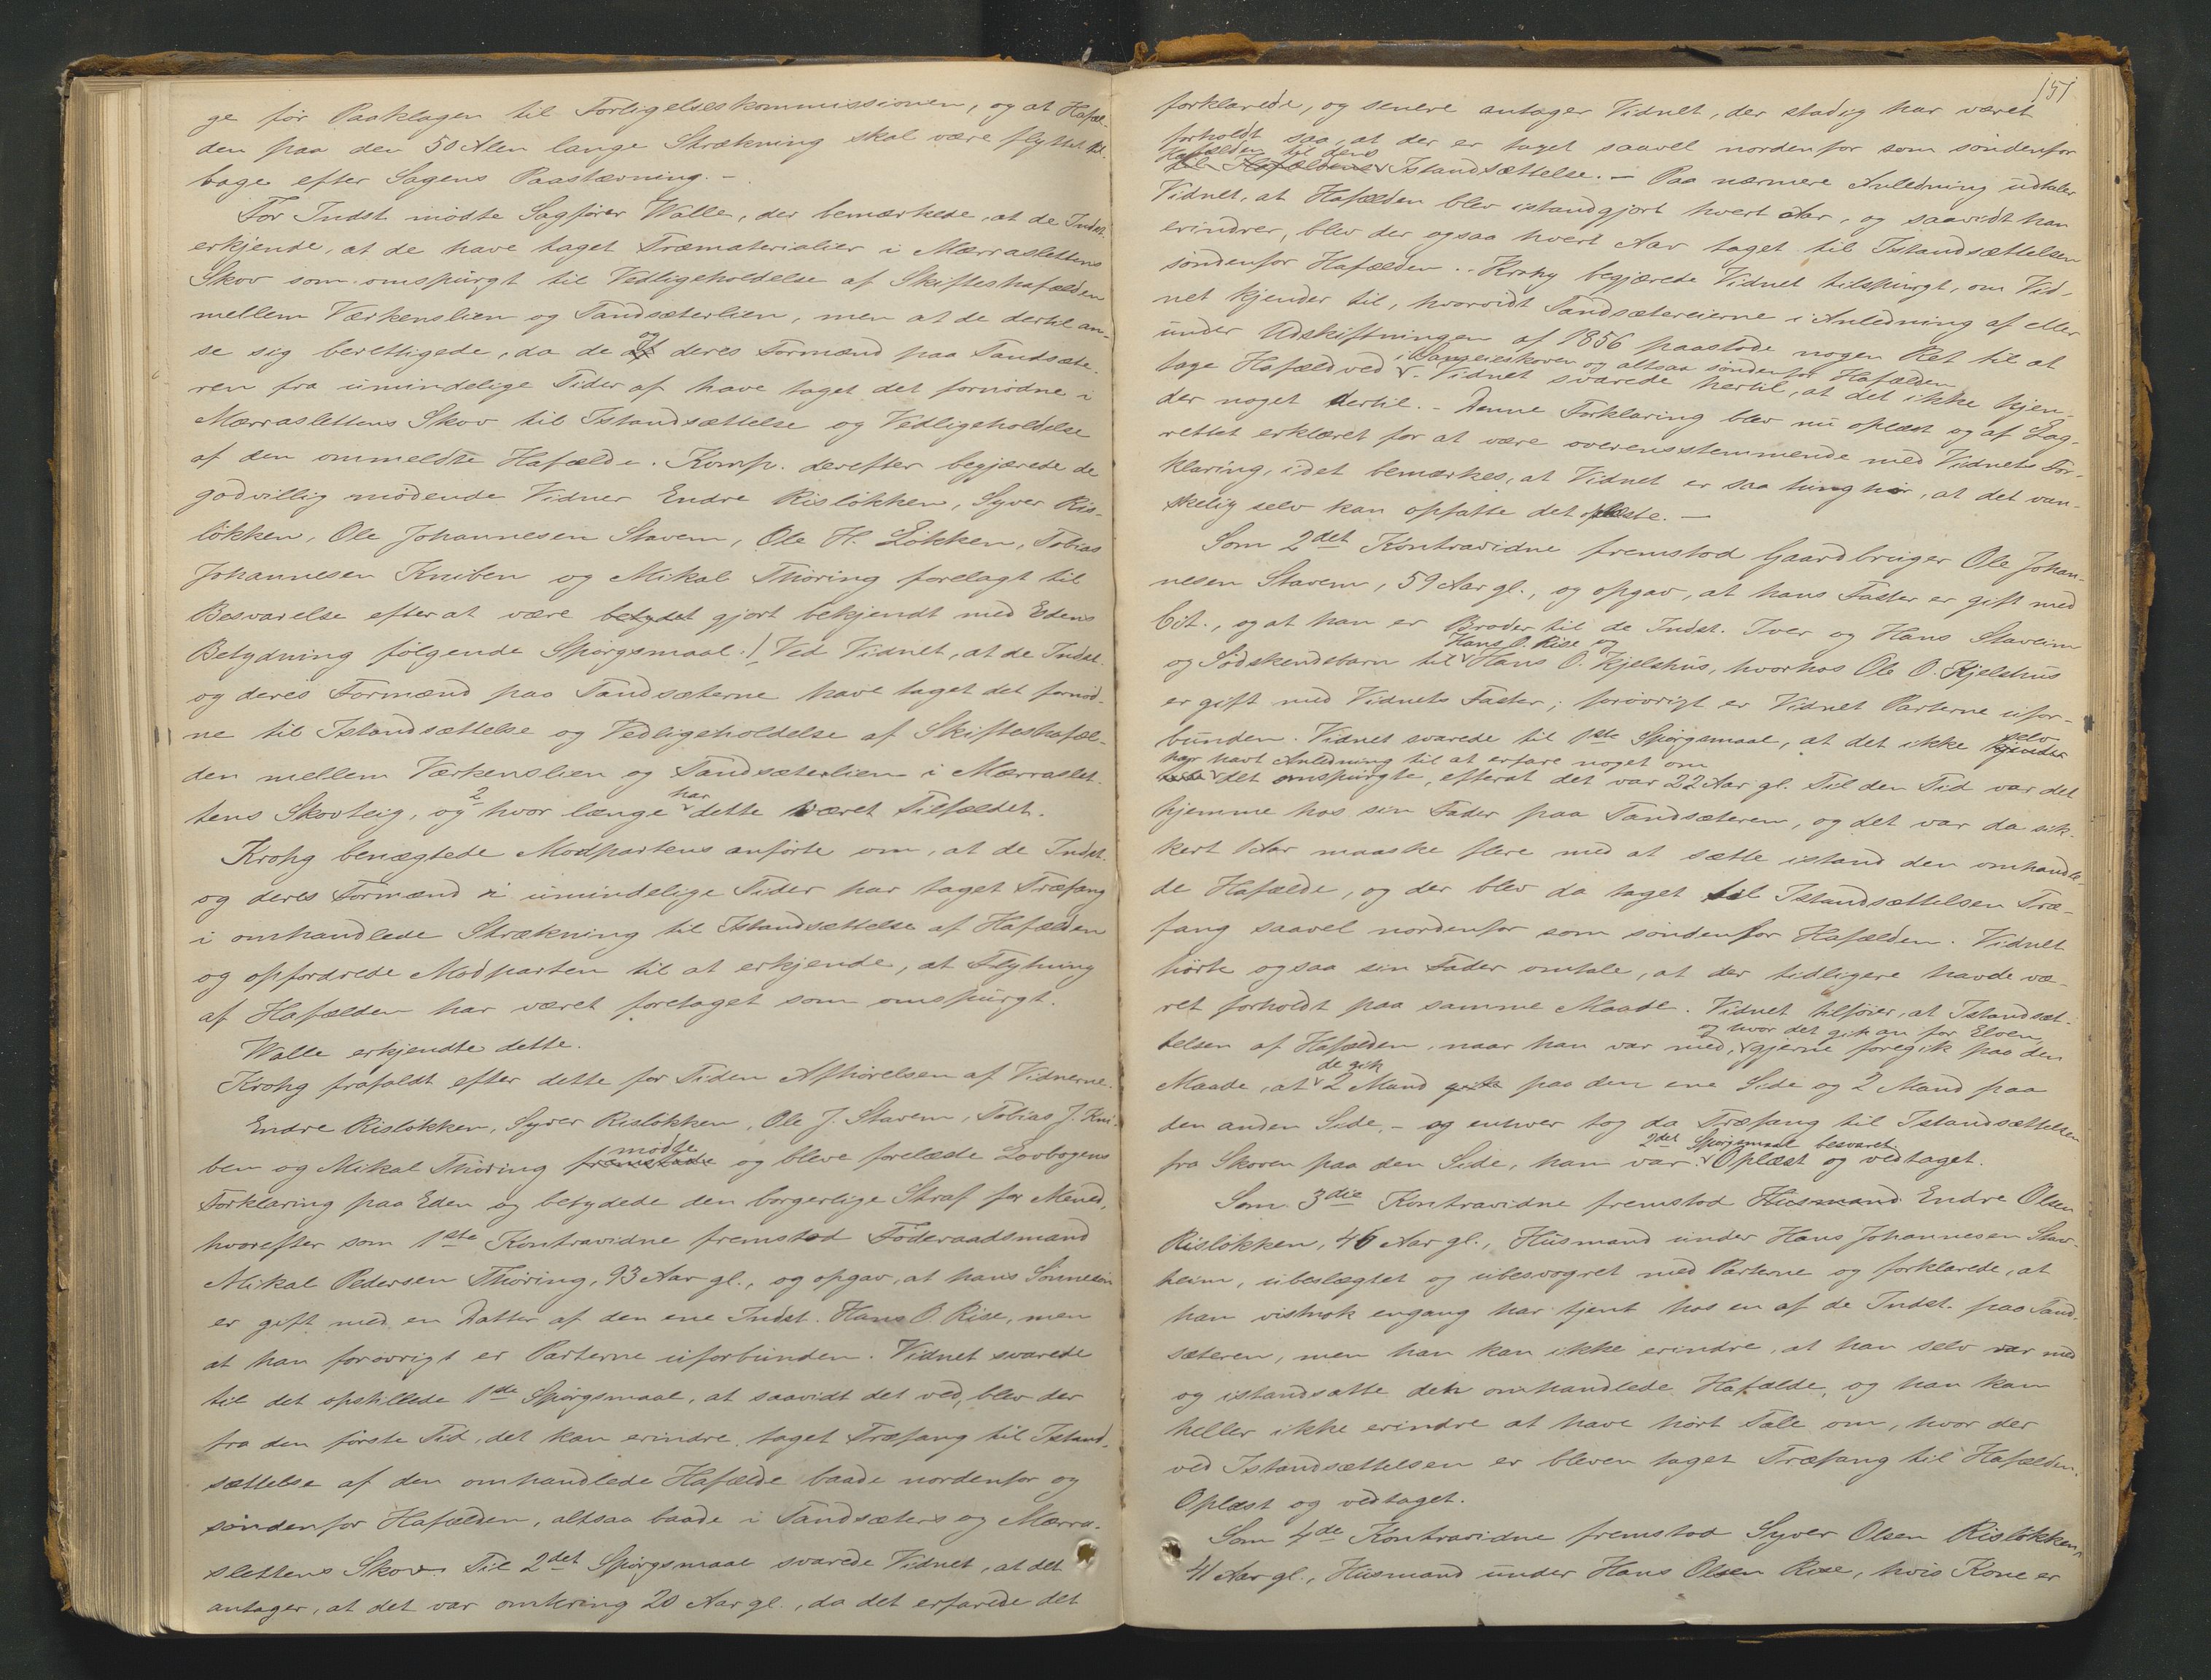 ge før Paaklagen til Forligelseskommissionen, og at Hafæl-
den paa den 50 Alen lange Strækning skal være flyttet til-
bage efter Sagens Paastævning. -
For Indst. mødte Sagfører Walle, der bemærkede, at de Indst.
erkjende, at de have taget Træmaterialier i Mærraslettens
Skov som omspurgt til Vedligeholdelse af Skifteshafælden
mellem Værkenslien og Tandsæterlien, men at de dertil an-
se sig berettigede, da de og deres Formænd paa Tandsæte-
ren fra umindelige Tider af have taget det fornødne i
Mærraslettens Skov til Istandsættelse og Vedligeholdelse
af den ommeldte Hafælde. Komp. derefter begjærede de
godvillig mødende Vidner Endre Risløkken, Syver Ris-
løkken, Ole Johannesen Stavem, Ole H. Løkken, Tobias
Johannesen Kniben og Mikal Thøring forelagt til
Besvarelse efter at være betydet gjort bekjendt med Edens
Betydning følgende Spørgsmaal: 1, Ved Vidnet, at de Indst.
og deres Formænd paa Tandsæterne have taget det fornød-
ne til Istandsættelse og Vedligeholdelse af Skifteshafæl-
den mellem Værkenslien og Tandsæterlien i Mærraslet-
tens Skovteig, og 2 hvor længe har dette været Tilfældet.
Krohg benægtede Modpartens anførte om, at de Indst.
og deres Formænd i umindelige Tider har taget Træfang
i omhandlede Strækning til Istandsættelse af Hafælden
og opfordrede Modparten til at erkjende, at Flytning
af Hafælden har været foretaget som omspurgt.
Walle erkjendte dette.
Krohg frafaldt efter dette for Tiden Afhørelsen af Vidnerne.
Endre Risløkken, Syver Risløkken, Ole J. Stavem, Tobias J. Kni-
ben og Mikal Thøring fremstode mødte og bleve forelæste Lovbogens
Forklaring paa Eden og betydede den borgerlige Straf for Mened,
hvorefter som 1ste Kontravidne fremstod Føderaadsmand
Mikal Pedersen Thøring, 93 Aar gl., og opgav, at hans Sønnesøn
er gift med en Datter af den ene Indst. Hans O. Rise, men
at han forøvrigt er Parterne uforbunden. Vidnet svarede
til det opstillede 1ste Spørgsmaal, at saavidt det ved, blev der
fra den første Tid, det kan erindre, taget Træfang til Istand-
sættelse af den omhandlede Hafælde baade nordenfor og
søndenfor Hafælden, altsaa baade i Tandsæters og Mærra-
slettens Skov. Til 2det Spørgsmaal svarede Vidnet, at det
antager, at det var omkring 20 Aar gl., da det erfarede det
151
forklarede, og senere antager Vidnet, der stadig har været
forholdt saa, at der er taget saavel nordenfor som søndenfor
Hafælden til dens
til Hafældens Istandsættelse. - Paa nærmere Anledning udtaler
Vidnet, at Hafælden blev istandgjort hvert Aar, og saavidt han
erindrer, blev der ogsaa hvert Aar taget til Istandsættelsen
søndenfor Hafælden. - Krohg begjærede Vidnet tilspurgt, om Vid-
net kjender til, hvorvidt Tandsætereierne i Anledning af eller
under Udskiftningen af 1856 paastode nogen Ret til at
i Langeieskoven og altsaa søndenfor Hafælden
tage Hafældved. - Vidnet svarede hertil, at det ikke kjen-
der noget dertil. - Denne Forklaring blev nu oplæst og af Lag-
rettet erklæret for at være overensstemmende med Vidnets For-
klaring, idet bemærkes, at Vidnet er saa tunghør, at det van-
skelig selv kan opfatte det oplæste. -
Som 2det Kontravidne fremstod Gaardbruger Ole Johan-
nesen Stavem, 59 Aar gl., og opgav, at hans Faster er gift med
Cit., og at han er Broder til de Indst. Iver og Hans Staveim
Hans O. Rise og
og Sødskendebarn til Hans O. Kjelshus, hvorhos Ole O. Kjelshus
er gift med Vidnets Faster; forøvrigt er Vidnet Parterne ufor-
bunden. Vidnet svarede til 1ste Spørgsmaal, at det ikke kjender selv
har havt Anledning til at erfare noget om
det omspurgte, efterat det var 22 Aar gl. Til den Tid var det
hjemme hos sin Fader paa Tandsæteren, og det var da sik-
kert 1 Aar maaske flere med at sætte istand den omhandle-
de Hafælde, og der blev da taget til Istandsættelsen Træ-
fang saavel nordenfor som søndenfor Hafælden. Vidnet
hørte ogsaa sin Fader omtale, at der tidligere havde væ-
ret forholdt paa samme Maade. Vidnet tilføier, at Istandsæt-
og hvor det gik an for Elven
telsen af Hafælden, naar han var med, gjerne foregik paa den
de gik
Maade, at 2 Mand paa den ene Side og 2 Mand paa
den anden Side, - og enhver tog da Træfang til Istandsættelsen
2det Spørgsmaal besvaret
fra Skoven paa den Side, han var. Oplæst og vedtaget.
Som 3die Kontravidne fremstod Husmand Endre Olsen
Risløkken, 46 Aar gl., Husmand under Hans Johannesen Stav-
heim, ubeslægtet og ubesvogret med Parterne og forklarede, at
han vistnok engang har tjent hos en af de Indst. paa Tand-
sæteren, men han kan ikke erindre, at han selv var med
og istandsatte den omhandlede Hafælde, og han kan
heller ikke erindre at have hørt Tale om, hvor der
ved Istandsættelsen er bleven taget Træfang til Hafælden.
Oplæst og vedtaget.
Som 4de Kontravidne fremstod Syver Olsen Risløkken,
41 Aar gl., Husmand under Hans Olsen Rise, hvis Kone er